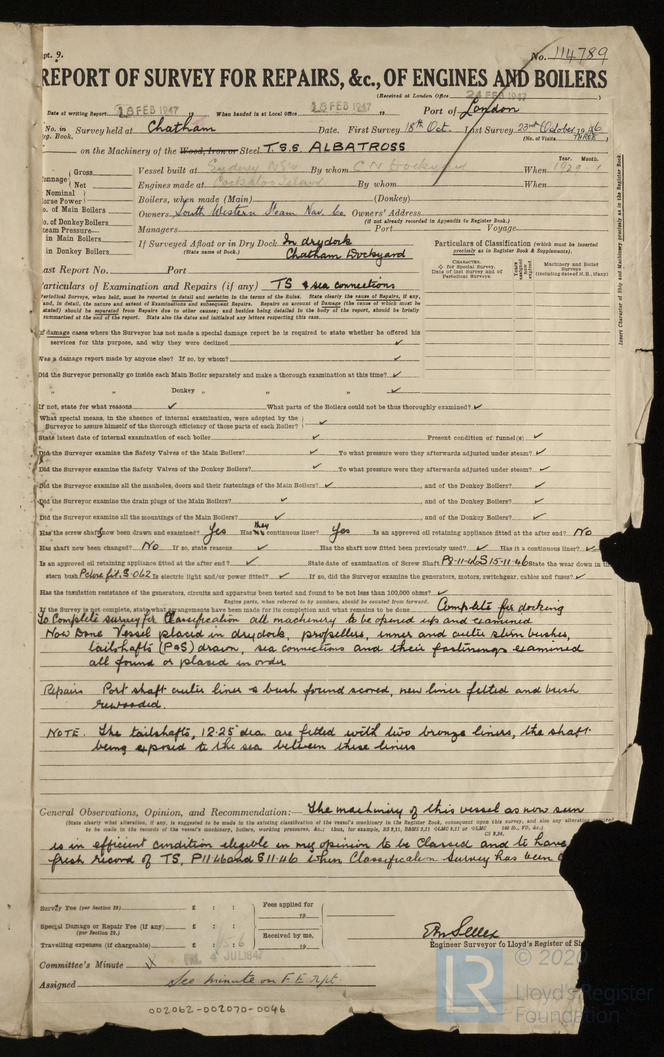 pt. 9.
No. 114789
REPORT OF SURVEY FOR REPAIRS, &c., OF ENGINES AND BOILERS
(Received at London Office 24 FEB 1947)
Date of writing Report FEB 1947 When handed in at Local Office FEB 1947 19 Port of London
No. in Survey held at Chatham Date. First Survey 18th Oct. Last Survey 23rd October 1946
eg. Book. (No. of Visits THREE)
on the Machinery of the Wood, Iron or Steel T.S.S. ALBATROSS
Tonnage Gross Vessel built at Sydney NSW By whom C N Dockyard When Year. Month. 1929 - 1
Net Engines made at Cockatoo Island By whom When
Nominal Horse Power Boilers, when made (Main) (Donkey)
No. of Main Boilers Owners South Western Steam Nav. Co. Owners' Address
(If not already recorded in Appendix to Register Book.)
No. of Donkey Boilers Managers Port Voyage
Steam Pressure— in Main Boilers If Surveyed Afloat or in Dry Dock In drydock
in Donkey Boilers (State name of Dock.) Chatham Dockyard
Particulars of Classification (which must be inserted precisely as in Register Book & Supplements).
Last Report No. Port
CHARACTER. ✠ for Special Survey. Date of last Survey and of Periodical Surveys.
Machinery and Boiler Surveys (including date of N.B., if any)
Insert Character of Ship and Machinery precisely as in the Register Book.
Particulars of Examination and Repairs (if any) TS & sea connections
Periodical Surveys, when held, must be reported in detail and seriatim in the terms of the Rules. State clearly the cause of Repairs, if any,
and, in detail, the nature and extent of Examinations and subsequent Repairs. Repairs on account of Damage (the cause of which must be
stated) should be separated from Repairs due to other causes; and besides being detailed in the body of the report, should be briefly
summarized at the end of the report. State also the dates and initials of any letters respecting this case.
If damage cases where the Surveyor has not made a special damage report he is required to state whether he offered his
services for this purpose, and why they were declined ✓
Was a damage report made by anyone else? If so, by whom? ✓
Did the Surveyor personally go inside each Main Boiler separately and make a thorough examination at this time? ✓
" " Donkey " " " " ✓
If not, state for what reasons ✓ What parts of the Boilers could not be thus thoroughly examined? ✓
What special means, in the absence of internal examination, were adopted by the
Surveyor to assure himself of the thorough efficiency of those parts of each Boiler? ✓
State latest date of internal examination of each boiler ✓ Present condition of funnel(s) ✓
Did the Surveyor examine the Safety Valves of the Main Boilers? ✓ To what pressure were they afterwards adjusted under steam? ✓
Did the Surveyor examine the Safety Valves of the Donkey Boilers? ✓ To what pressure were they afterwards adjusted under steam? ✓
Did the Surveyor examine all the manholes, doors and their fastenings of the Main Boilers? ✓ and of the Donkey Boilers? ✓
Did the Surveyor examine the drain plugs of the Main Boilers? ✓ and of the Donkey Boilers? ✓
Did the Surveyor examine all the mountings of the Main Boilers? ✓ and of the Donkey Boilers? ✓
Has the screw shafts now been drawn and examined? Yes Has they continuous liner? Yes Is an approved oil retaining appliance fitted at the after end? No
Has shaft now been changed? No If so, state reasons ✓ Has the shaft now fitted been previously used? ✓ Has it a continuous liner? ✓
Is an approved oil retaining appliance fitted at the after end? ✓ State date of examination of Screw Shaft P 8-11-46 S 15-11-46 State the wear down in
stern bush P close fit. S .062 Is electric light and/or power fitted? ✓ If so, did the Surveyor examine the generators, motors, switchgear, cables and fuses? ✓
Has the insulation resistance of the generators, circuits and apparatus been tested and found to be not less than 100,000 ohms? ✓
Engine parts, when referred to by numbers, should be counted from forward.
If the Survey is not complete, state what arrangements have been made for its completion and what remains to be done. Complete for docking
To Complete survey for Classification all machinery to be opened up and examined
Now Done Vessel placed in drydock, propellers, inner and outer stern bushes,
tailshafts (P&S) drawn, sea connections and their fastenings examined
all found or placed in order
Repairs Port shaft outer liner & bush found scored, new liner fitted and bush
rewooded.
NOTE. The tailshafts, 12.25" dia. are fitted with two bronze liners, the shaft
being exposed to the sea between these liners
General Observations, Opinion, and Recommendation:— The machinery of this vessel as now seen
(State clearly what alteration, if any, is suggested to be made in the existing classification of the vessel's machinery in the Register Book, consequent upon this survey, and also any alteration
to be made in the records of the vessel's machinery, boilers, working pressures, &c.; thus, for example,
is in efficient condition eligible in my opinion to be Classed and to have
fresh record of TS, P 11.46 and S 11.46 when Classification Survey has been
Survey Fee (per Section 29) £ : : Fees applied for 19
Special Damage or Repair Fee (if any) (per Section 29.) £ : :
Travelling expenses (if chargeable) £ : : Received by me, 19
Engineer Surveyor to Lloyd's Register of Sh
Committee's Minute 4 JUL 1947
Assigned See minute on F.E. rpt.
002062-002070-0046
© 2020
LR
Lloyd's Register
Foundation